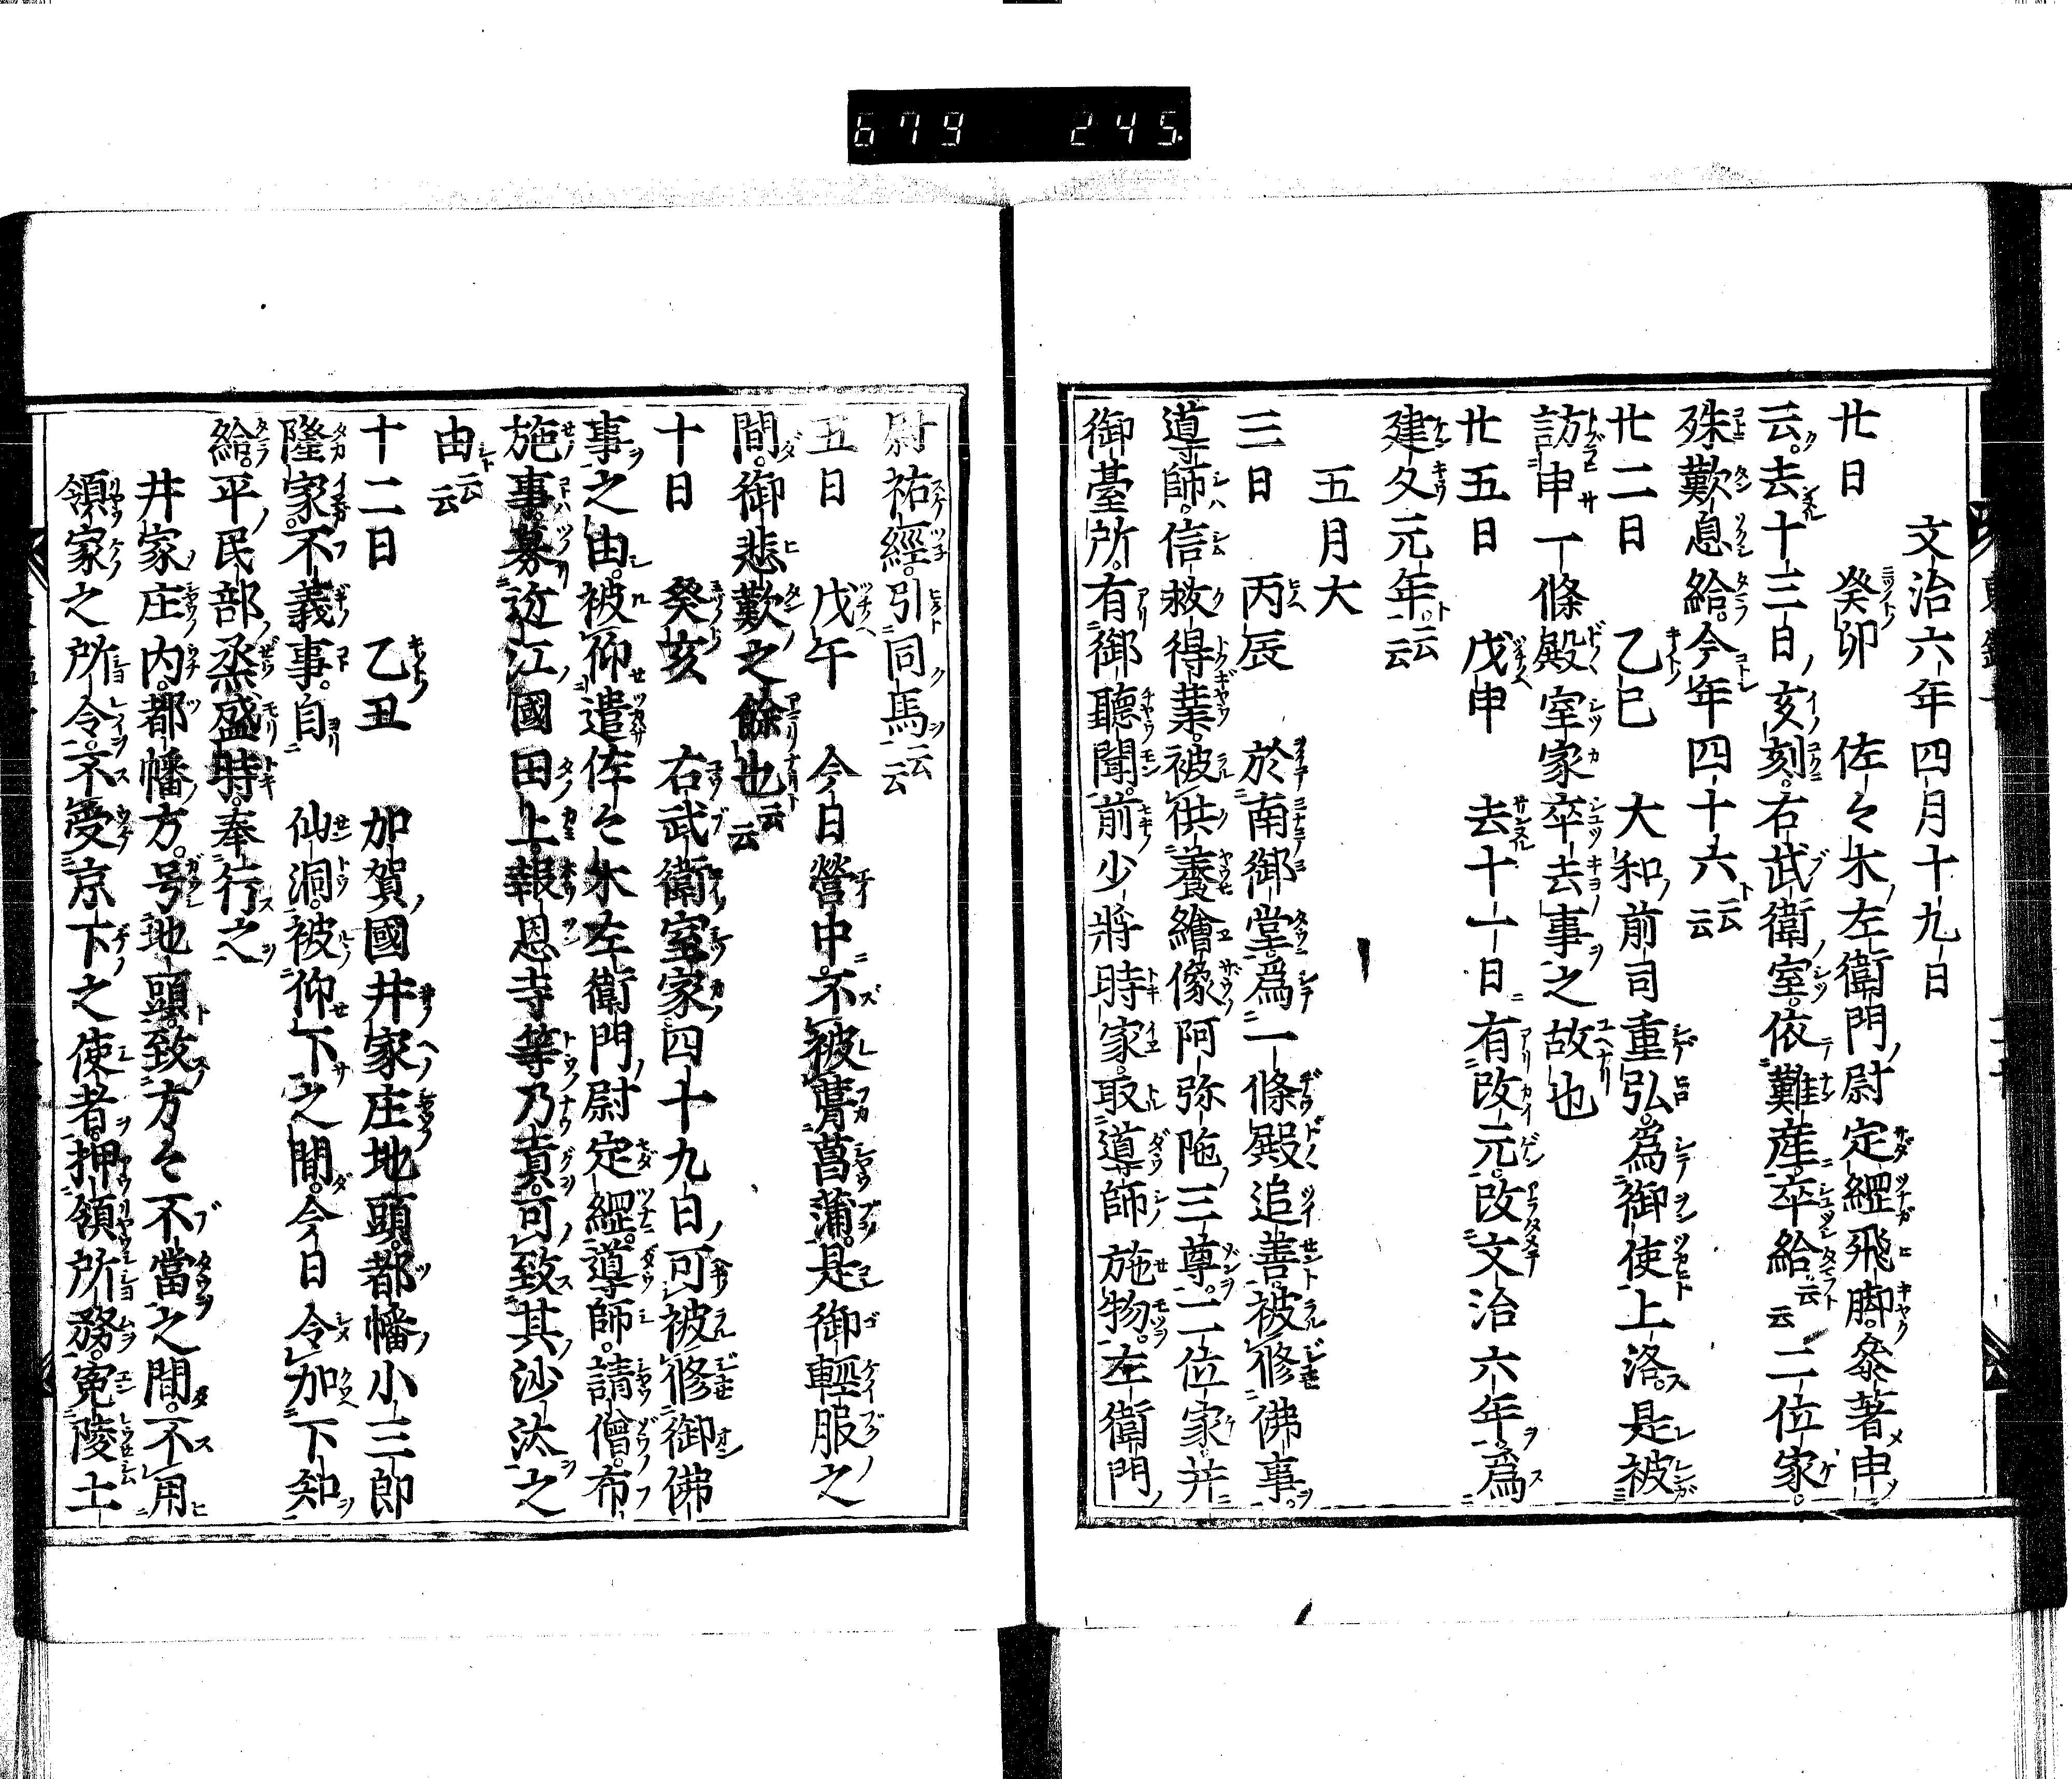 679 245.
文治六年四月十九日
廿日 癸卯 佐々木左衛門尉定綱飛脚參著申
云去十三日亥刻右武衛室依難産卒給云云二位家
殊歎息給今年四十六云云
廿二日 乙巳 大和前司重弘爲御使上洛是被
訪申一條殿室家卒去事之故也
廿五日 戊申 去十一日有改元改文治六年爲
建久元年云云
五月大
三日 丙辰 於南御堂爲一條殿追善被修佛事
導師信救得業被供養繪像阿弥陁三尊二位家并
御臺所有御聽聞前少將時家取導師施物左衛門
尉祐經引同馬云云
五日 戊午 今日營中不被葺菖蒲是御輕服之
間御悲歎之餘也云云
十日 癸亥 右武衛室家四十九日可被修御佛
事之由被仰遣佐々木左衛門尉定綱導師請僧布
施事募近江國田上報恩寺等乃貢可致其沙汰之
由云云
十二日 乙丑 加賀國井家庄地頭都幡小三郎
隆家不義事自 仙洞被仰下之間今日令加下知
給平民部烝盛時奉行之
井家庄内都幡方号地頭致方々不當之間不用
領家之所令不受京下之使者押領所務寃陵土